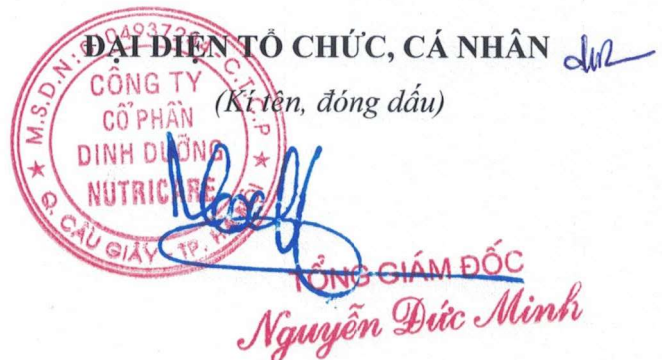 ĐẠI DIỆN TỔ CHỨC, CÁ NHÂN
(Kí tên, đóng dấu)
CÔNG TY
CỔ PHẦN
DINH DƯỠNG
NUTRICARE
★ Q. CẦU GIẤY - TP. HÀ NỘI ★
TỔNG GIÁM ĐỐC
Nguyễn Đức Minh